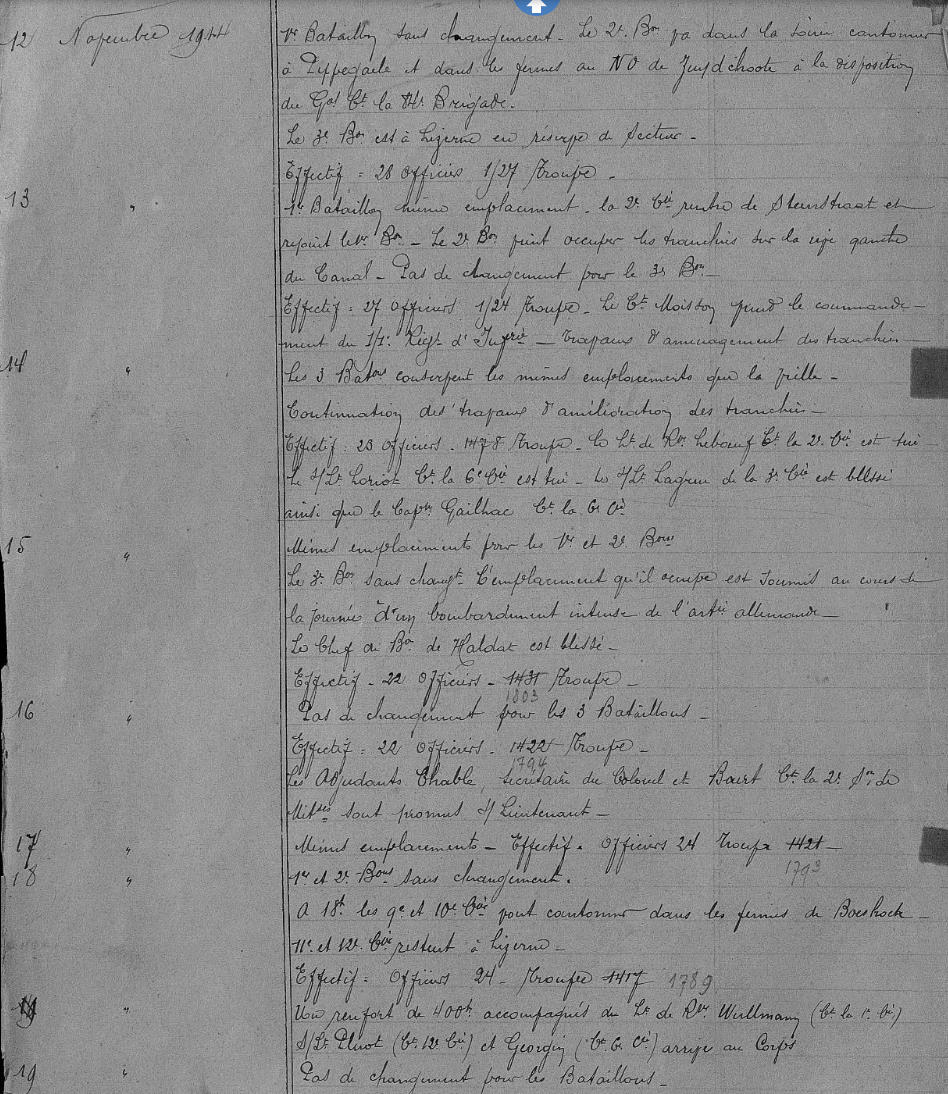 12 Novembre 1914 1er Bataillon sans changement. Le 2e Bon va dans la soirée cantonner
à Pippegaele et dans les fermes au NO de Zuydschoote à la disposition
du Gal Ct la Brigade.
Le 3e Bon est à Lizerne en réserve de Secteur.
Effectif = 28 Officiers 1727 Troupe.
13 " 1er Bataillon même emplacement. la 2e Cie rentre de Steenstraat et
rejoint le 1er Bon — Le 2e Bon vient occuper les tranchées sur la rive gauche
du Canal — Pas de changement pour le 3e Bon —
Effectif = 27 Officiers 1724 Troupe. Le Ct Moisson prend le commande-
ment du Régt d'Infrie — Travaux d'aménagement des tranchées —
14 " Les 3 Batons conservent les mêmes emplacements que la veille —
Continuation des travaux d'amélioration des tranchées —
Effectif : 23 Officiers. 1478 Troupe. Le Lt de Rve Lebœuf Ct la 2e Cie est tué
le S/Lt Loriot Ct la 6e Cie est tué — Le S/Lt de la 3e Cie est blessé
ainsi que le Capne Gailhac Ct la 6e Cie
15 " Mêmes emplacements pour les 1er et 2e Bons
Le 3e Bon sans changt. L'emplacement qu'il occupe est soumis au cours de
la journée d'un bombardement intense de l'artie allemande —
Le Chef de Bon de Haldat est blessé —
Effectif — 22 Officiers — 1431 Troupe —
1803
16 " Pas de changement pour les 3 Bataillons —
Effectif = 22 Officiers. 1422 Troupe —
1794
Les Adjudants Chable, secrétaire du Colonel et Ct la 2e Son de
Mitses sont promus S/Lieutenant —
17 " Mêmes emplacements — Effectif = Officiers 24 Troupe 1421 —
1793
18 " 1er et 2e Bons sans changement.
A 18h les 9e et 10e Cies vont cantonner dans les fermes de Boeshock —
11e et 12e Cies restent à Lizerne —
Effectif = Officiers 24 — Troupe 1417 1789
19 " Un renfort de 400h accompagnés du Lt de Rve Wullmann (Ct la 1e Cie)
S/Lt Pluot (Ct 12e Cie) et Georgin (Ct 6e Cie) arrive au Corps
19 " Pas de changement pour les Bataillons —